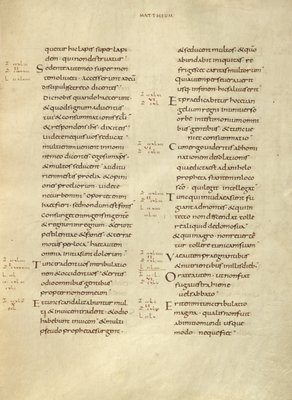 MATTHEUM
quetur hic lapis super lapi
dem . qui non destruatur
Sedente autem eo super
montem oliueti . accesserunt ad eum
discipuli secreto dicentes
Dic nobis quando haec erunt
& quod signum aduentus
tui & consummationis saeculi
& respondens ihs dixit eis
uidete ne quis uos seducat
multi enim uenient in nomi
ne meo dicentes . ego sum xps
& multos seducent . auditu
ri enim estis proelia & opini
ones proeliorum . uidete
ne turbemini . oportet enim
haec fieri sed nondum est finis
Consurget enim gens in gentem
& regnum in regnum . & erunt
pestilentiae & fames & terrae
motus per loca . haec autem
omnia initia sunt dolorum
Tunc tradent uos in tribulatio
nem & occident uos & eritis
odio omnibus gentibus
propter nomen meum
Et tunc scandalizabuntur mul
ti & inuicem tradent & odio
habebunt inuicem & multi
pseudo prophetae surgent
& seducent multos & quo
abundabit iniquitas re
frigescet caritas multorum
qui autem perseuerauerit
usq; in finem hic saluus erit
Et praedicabitur hoc euan
gelium regni in uniuerso
orbe in testimonium omni
bus gentibus & tunc
ueniet consummatio
Cum ergo uideritis abomi
nationem desolationis
quae dicta est a danihelo
propheta stantem in loco
sco qui legit intellegat
tunc qui in iudaea sunt fu
giant ad montes & qui in
tecto non descendat tolle
re aliquid de domo sua
& qui in agro non reuerta
tur tollere tunicam suam
Uae autem praegnantibus
& nutrientibus in illis dieb;
Orate autem ut non fiat
fuga uestra hieme
uel sabbato
Erit enim tunc tribulatio
magna . qualis non fuit
ab initio mundi usque
modo neque fiet